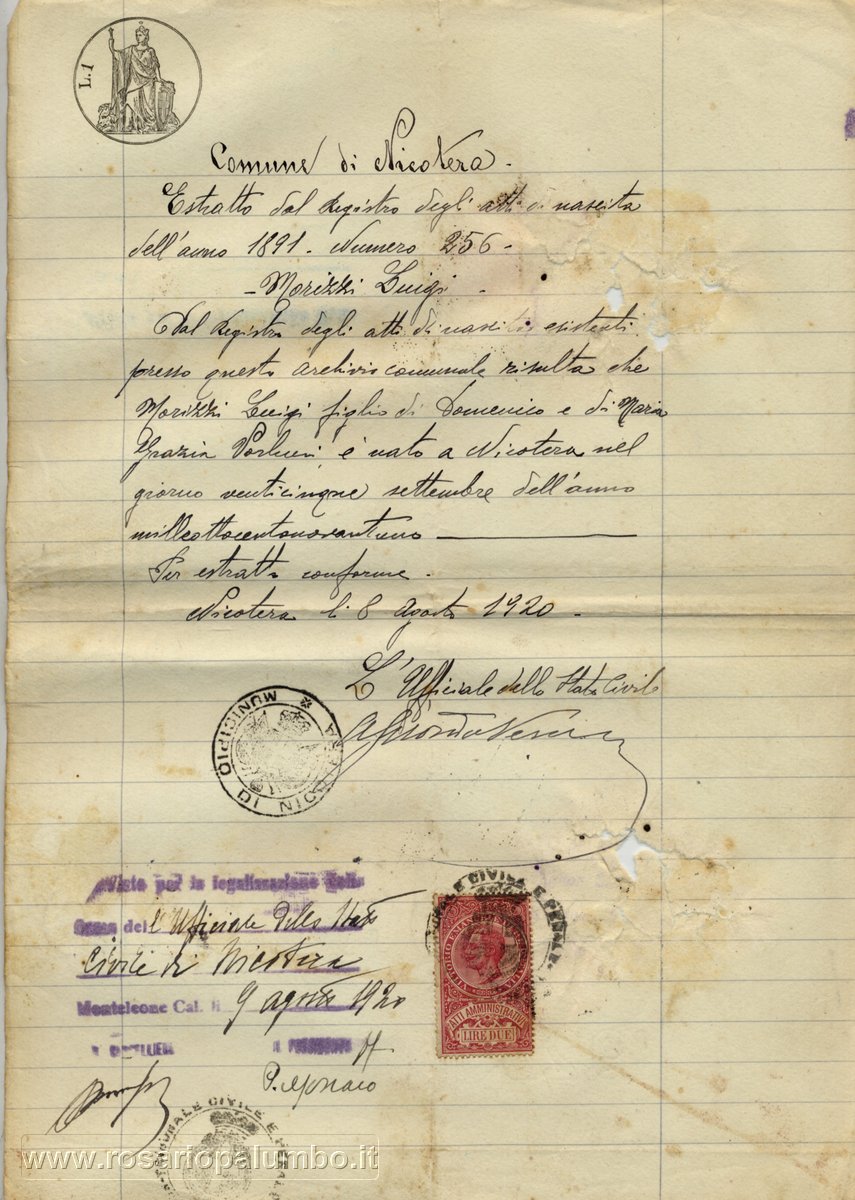 L.1
Comune di Nicotera.
Estratto dal Registro degli atti di nascita
dell'anno 1891. Numero 256.
Morizzi Luigi.
Dal Registro degli atti di nascita esistenti
presso questo archivio comunale risulta che
Morizzi Luigi figlio di Domenico e di Maria
Grazia è nato a Nicotera nel
giorno venticinque settembre dell'anno
milleottocentonovantuno
Per estratto conforme.
Nicotera li 8 Agosto 1920.
L'Ufficiale dello Stato Civile
MUNICIPIO DI NICOTERA
Visto per la legalizzazione della
firma del l'Ufficiale dello Stato
Civile di Nicotera
Monteleone Cal. li 9 agosto 1920
IL CANCELLIERE IL PRESIDENTE
P. Monaco
VITTORIO EMANUELE
ATTI AMMINISTRATIVI
LIRE DUE
TRIBUNALE CIVILE E PENALE
TRIBUNALE CIVILE E PENALE
www.rosariopalumbo.it